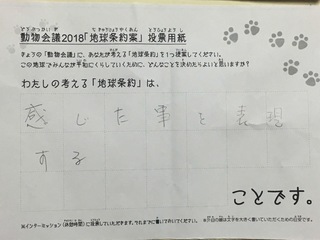 動物会議2018「地球条約案」投票用紙
きょうの「動物会議」に、あなたが考える「地球条約」を1つ提案してください。
この地球でみんなが平和にくらしていくために、どんなことを決めたらよいと思いますか?
わたしの考える「地球条約」は、
感じた事を表現
する
ことです。